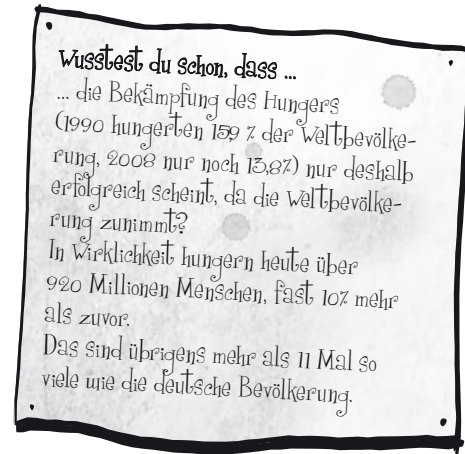 Wusstest du schon, dass ...
... die Bekämpfung des Hungers
(1990 hungerten 159 % der Weltbevölke-
rung, 2008 nur noch 13,8%) nur deshalb
erfolgreich scheint, da die Weltbevölke-
rung zunimmt?
In Wirklichkeit hungern heute über
920 Millionen Menschen, fast 10% mehr
als zuvor.
Das sind übrigens mehr als 11 Mal so
viele wie die deutsche Bevölkerung.